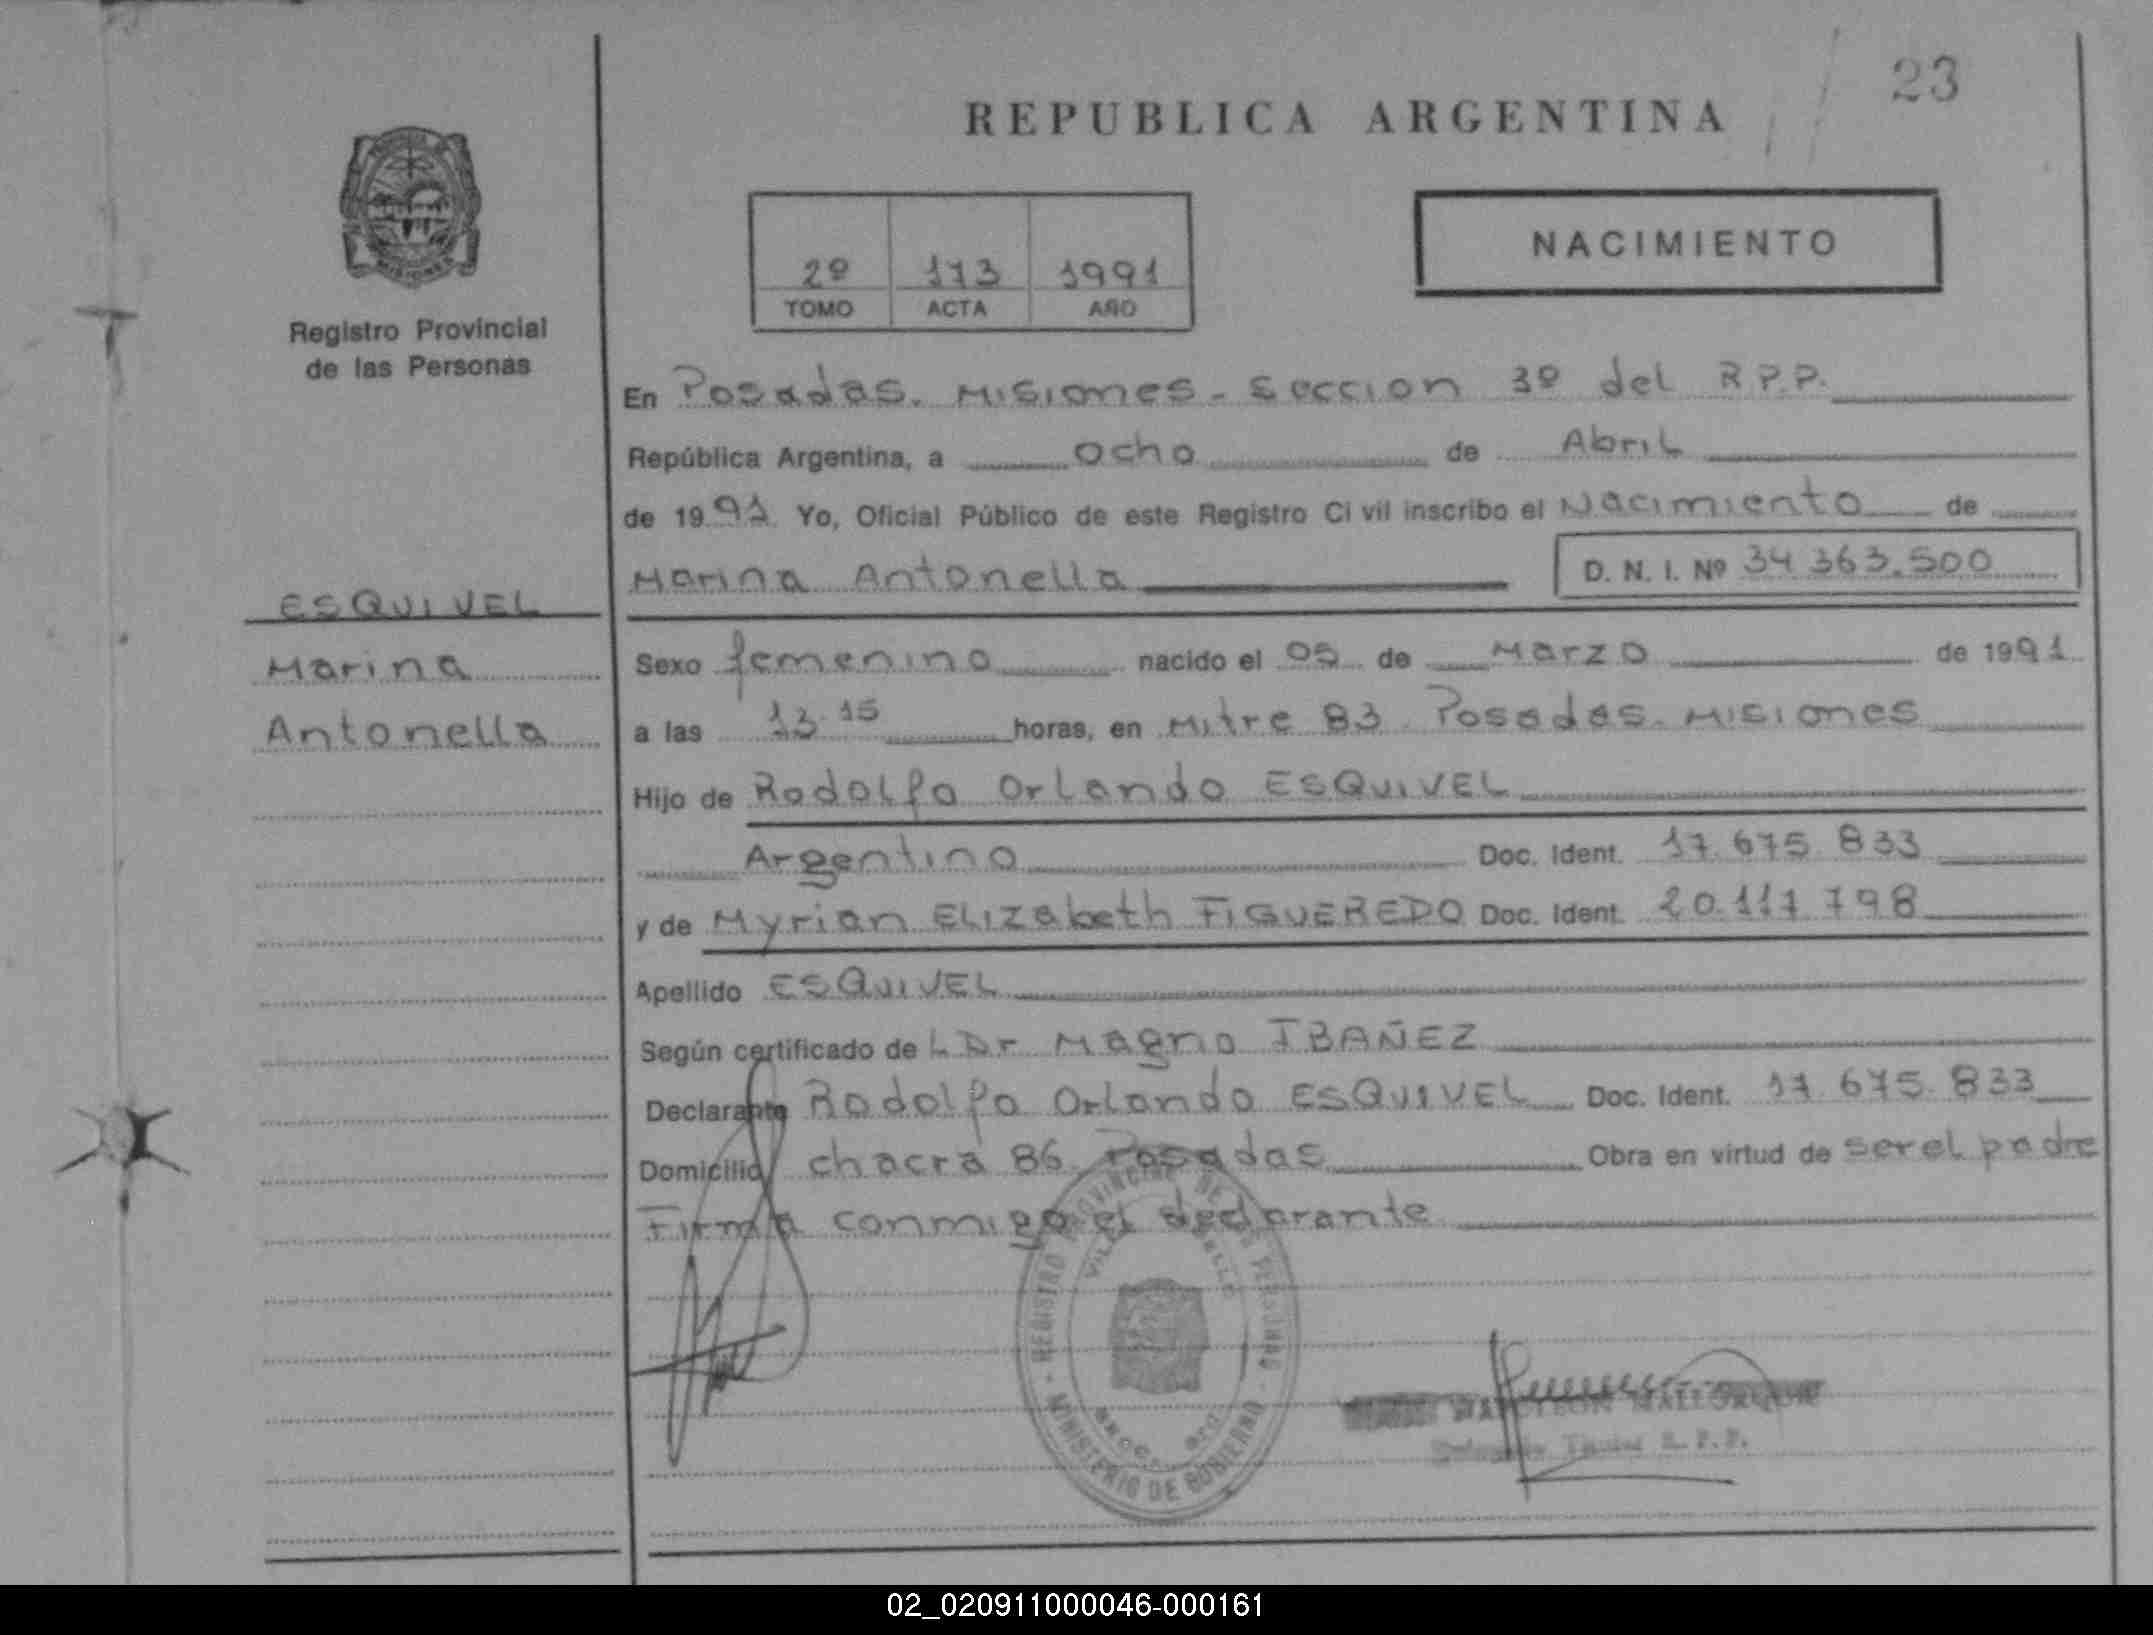 23
REPUBLICA ARGENTINA
MISIONES
Registro Provincial
de las Personas
NACIMIENTO
2º 173 1991
TOMO ACTA AÑO
En Posadas. Misiones - Seccion 3º del R.P.P.
República Argentina, a ocho de Abril
de 1991 Yo, Oficial Público de este Registro Ci vil inscribo el Nacimiento de
Marina Antonella D. N. I. Nº 34 363.500
ESQUIVEL
Marina
Antonella
Sexo femenino nacido el 05 de Marzo de 1991
a las 13.15 horas, en Mitre 83 Posadas. Misiones
Hijo de Rodolfo Orlando ESQUIVEL
Argentino Doc. Ident. 17.675.833
y de Myrian ELIZabeth FIGUEREDO Doc. Ident. 20.117.798
Apellido ESQUIVEL
Según certificado de L Dr Magno IBAÑEZ
Declarante Rodolfo Orlando ESQUIVEL Doc. Ident. 17.675.833
Domicilio chacra 86 Posadas Obra en virtud de ser el padre
Firma conmigo el declarante
REGISTRO PROVINCIAL DE LAS PERSONAS
MINISTERIO DE GOBIERNO
R. P. P.
02_020911000046-000161